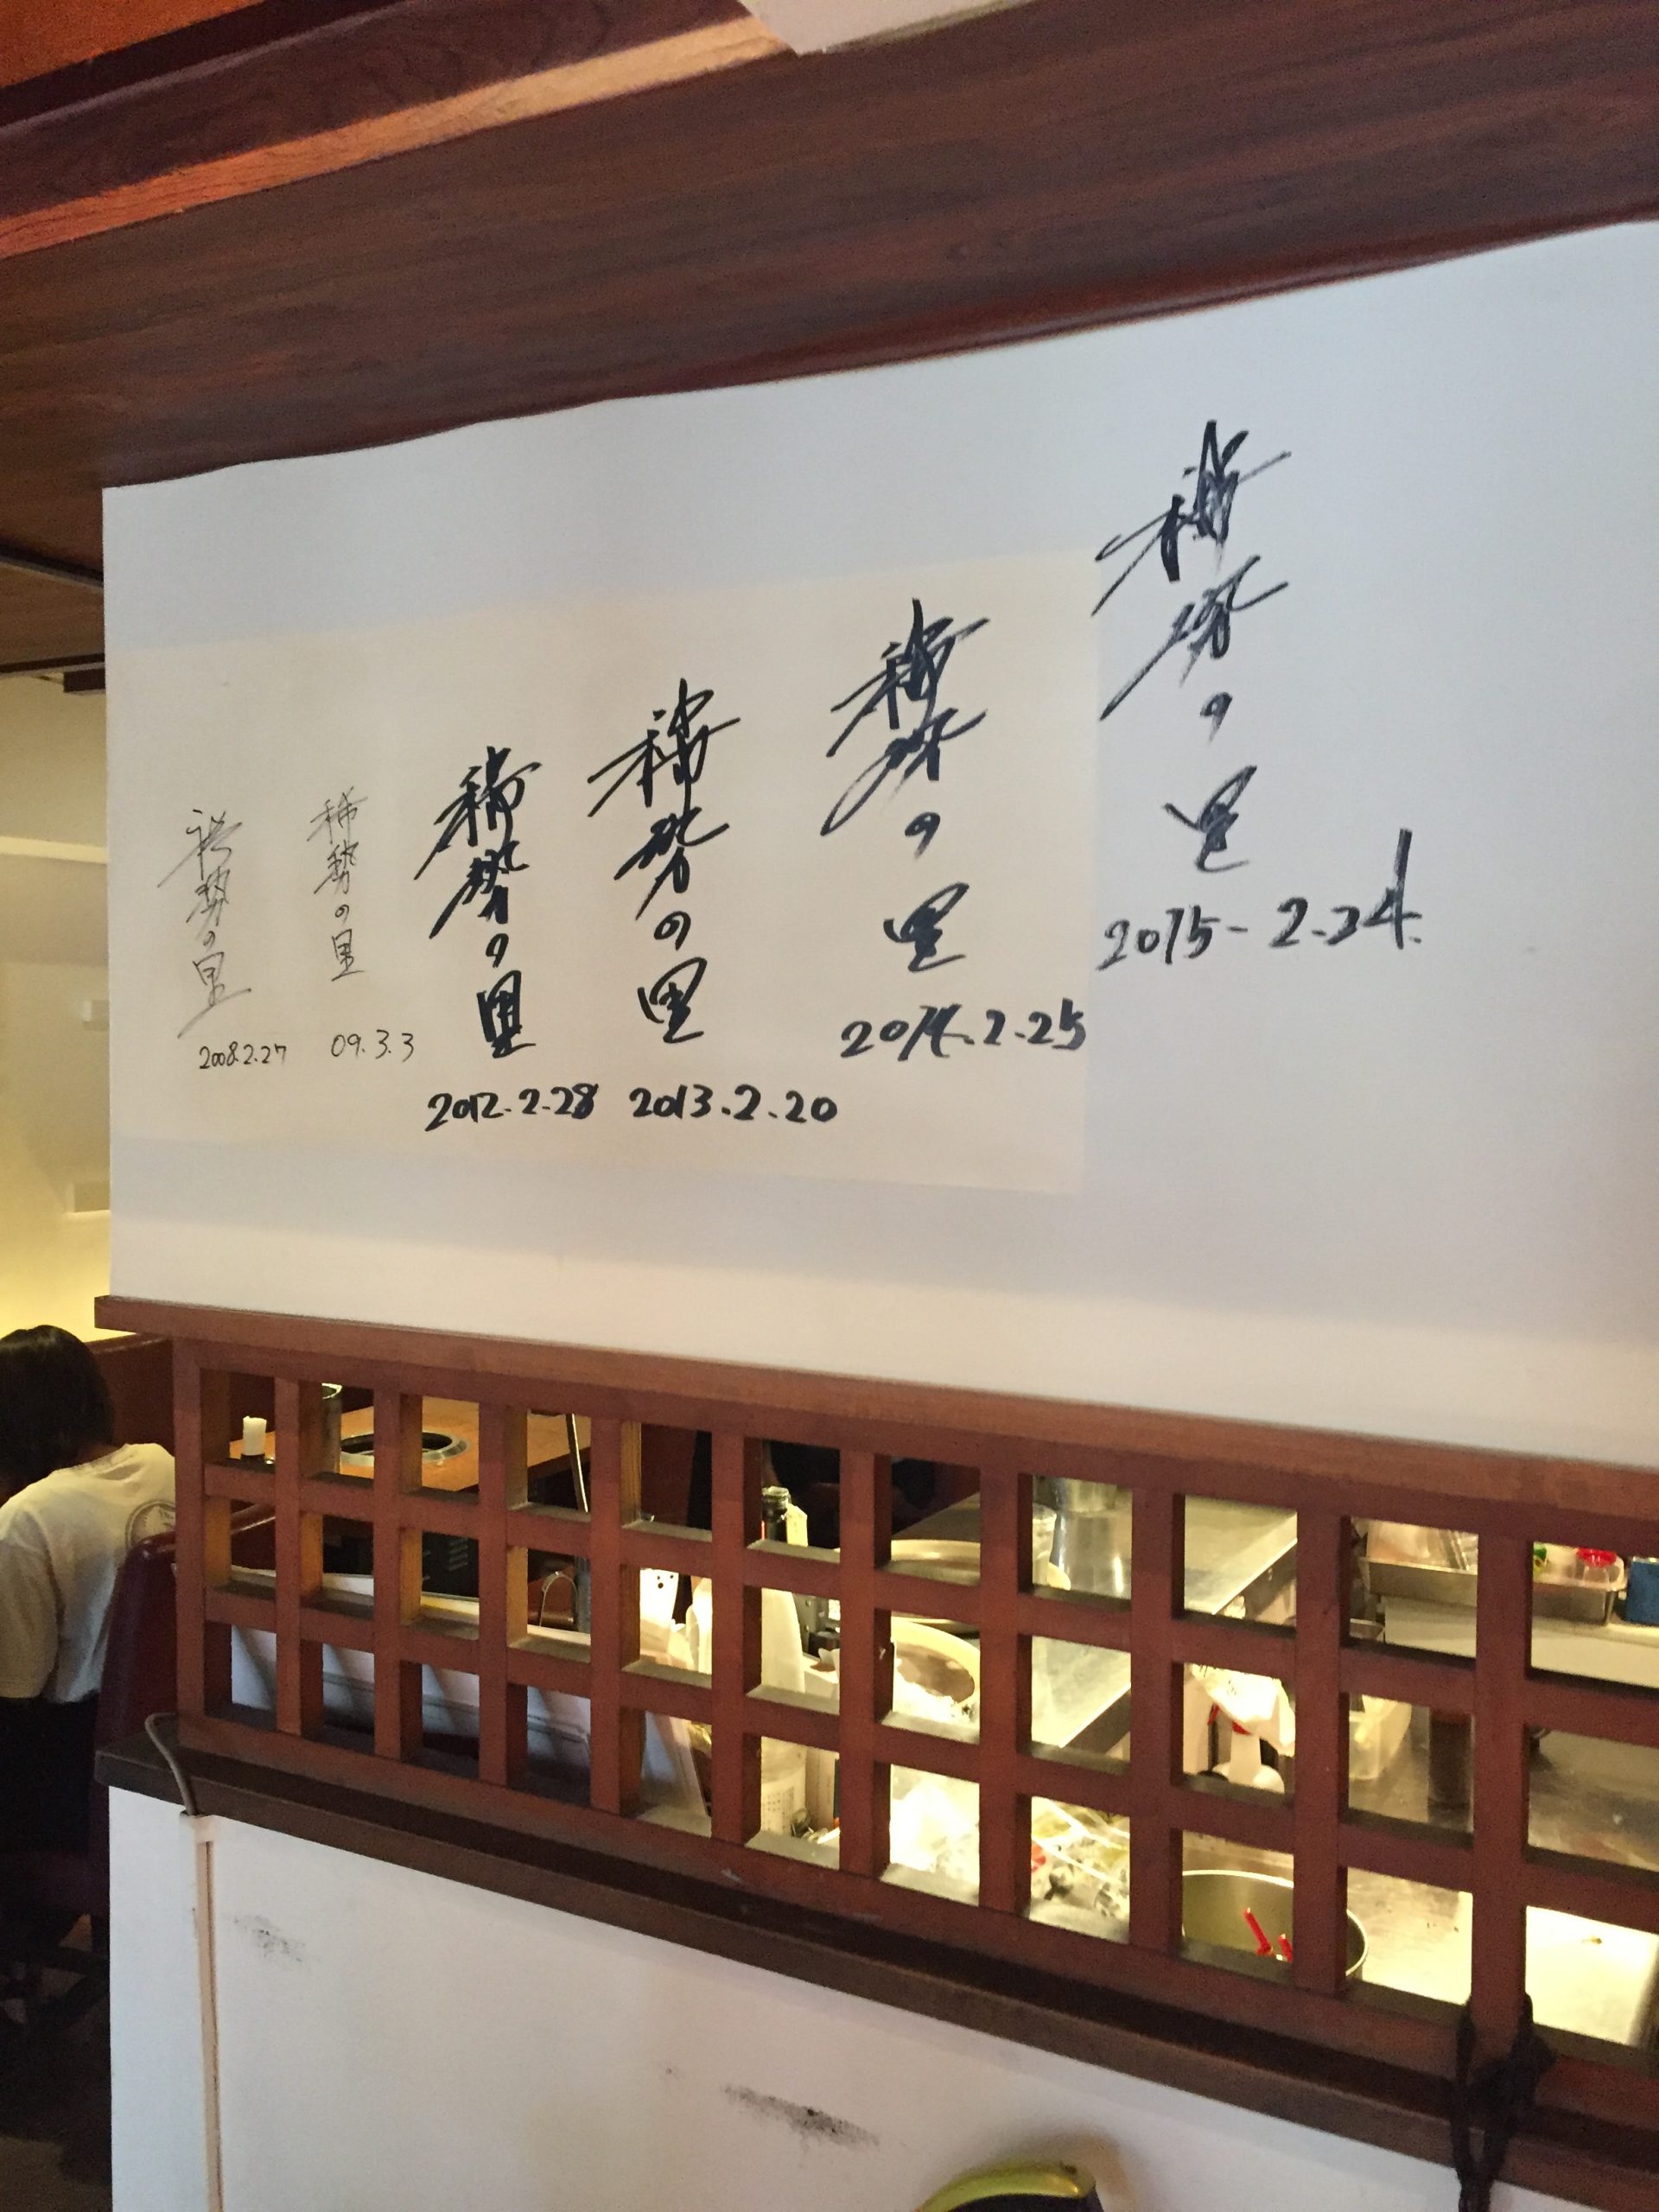 稀勢の里
2008.2.27
稀勢の里
09.3.3
稀勢の里
2012.2.28
稀勢の里
2013.2.20
稀勢の里
2014.2.25
稀勢の里
2015-2.24.